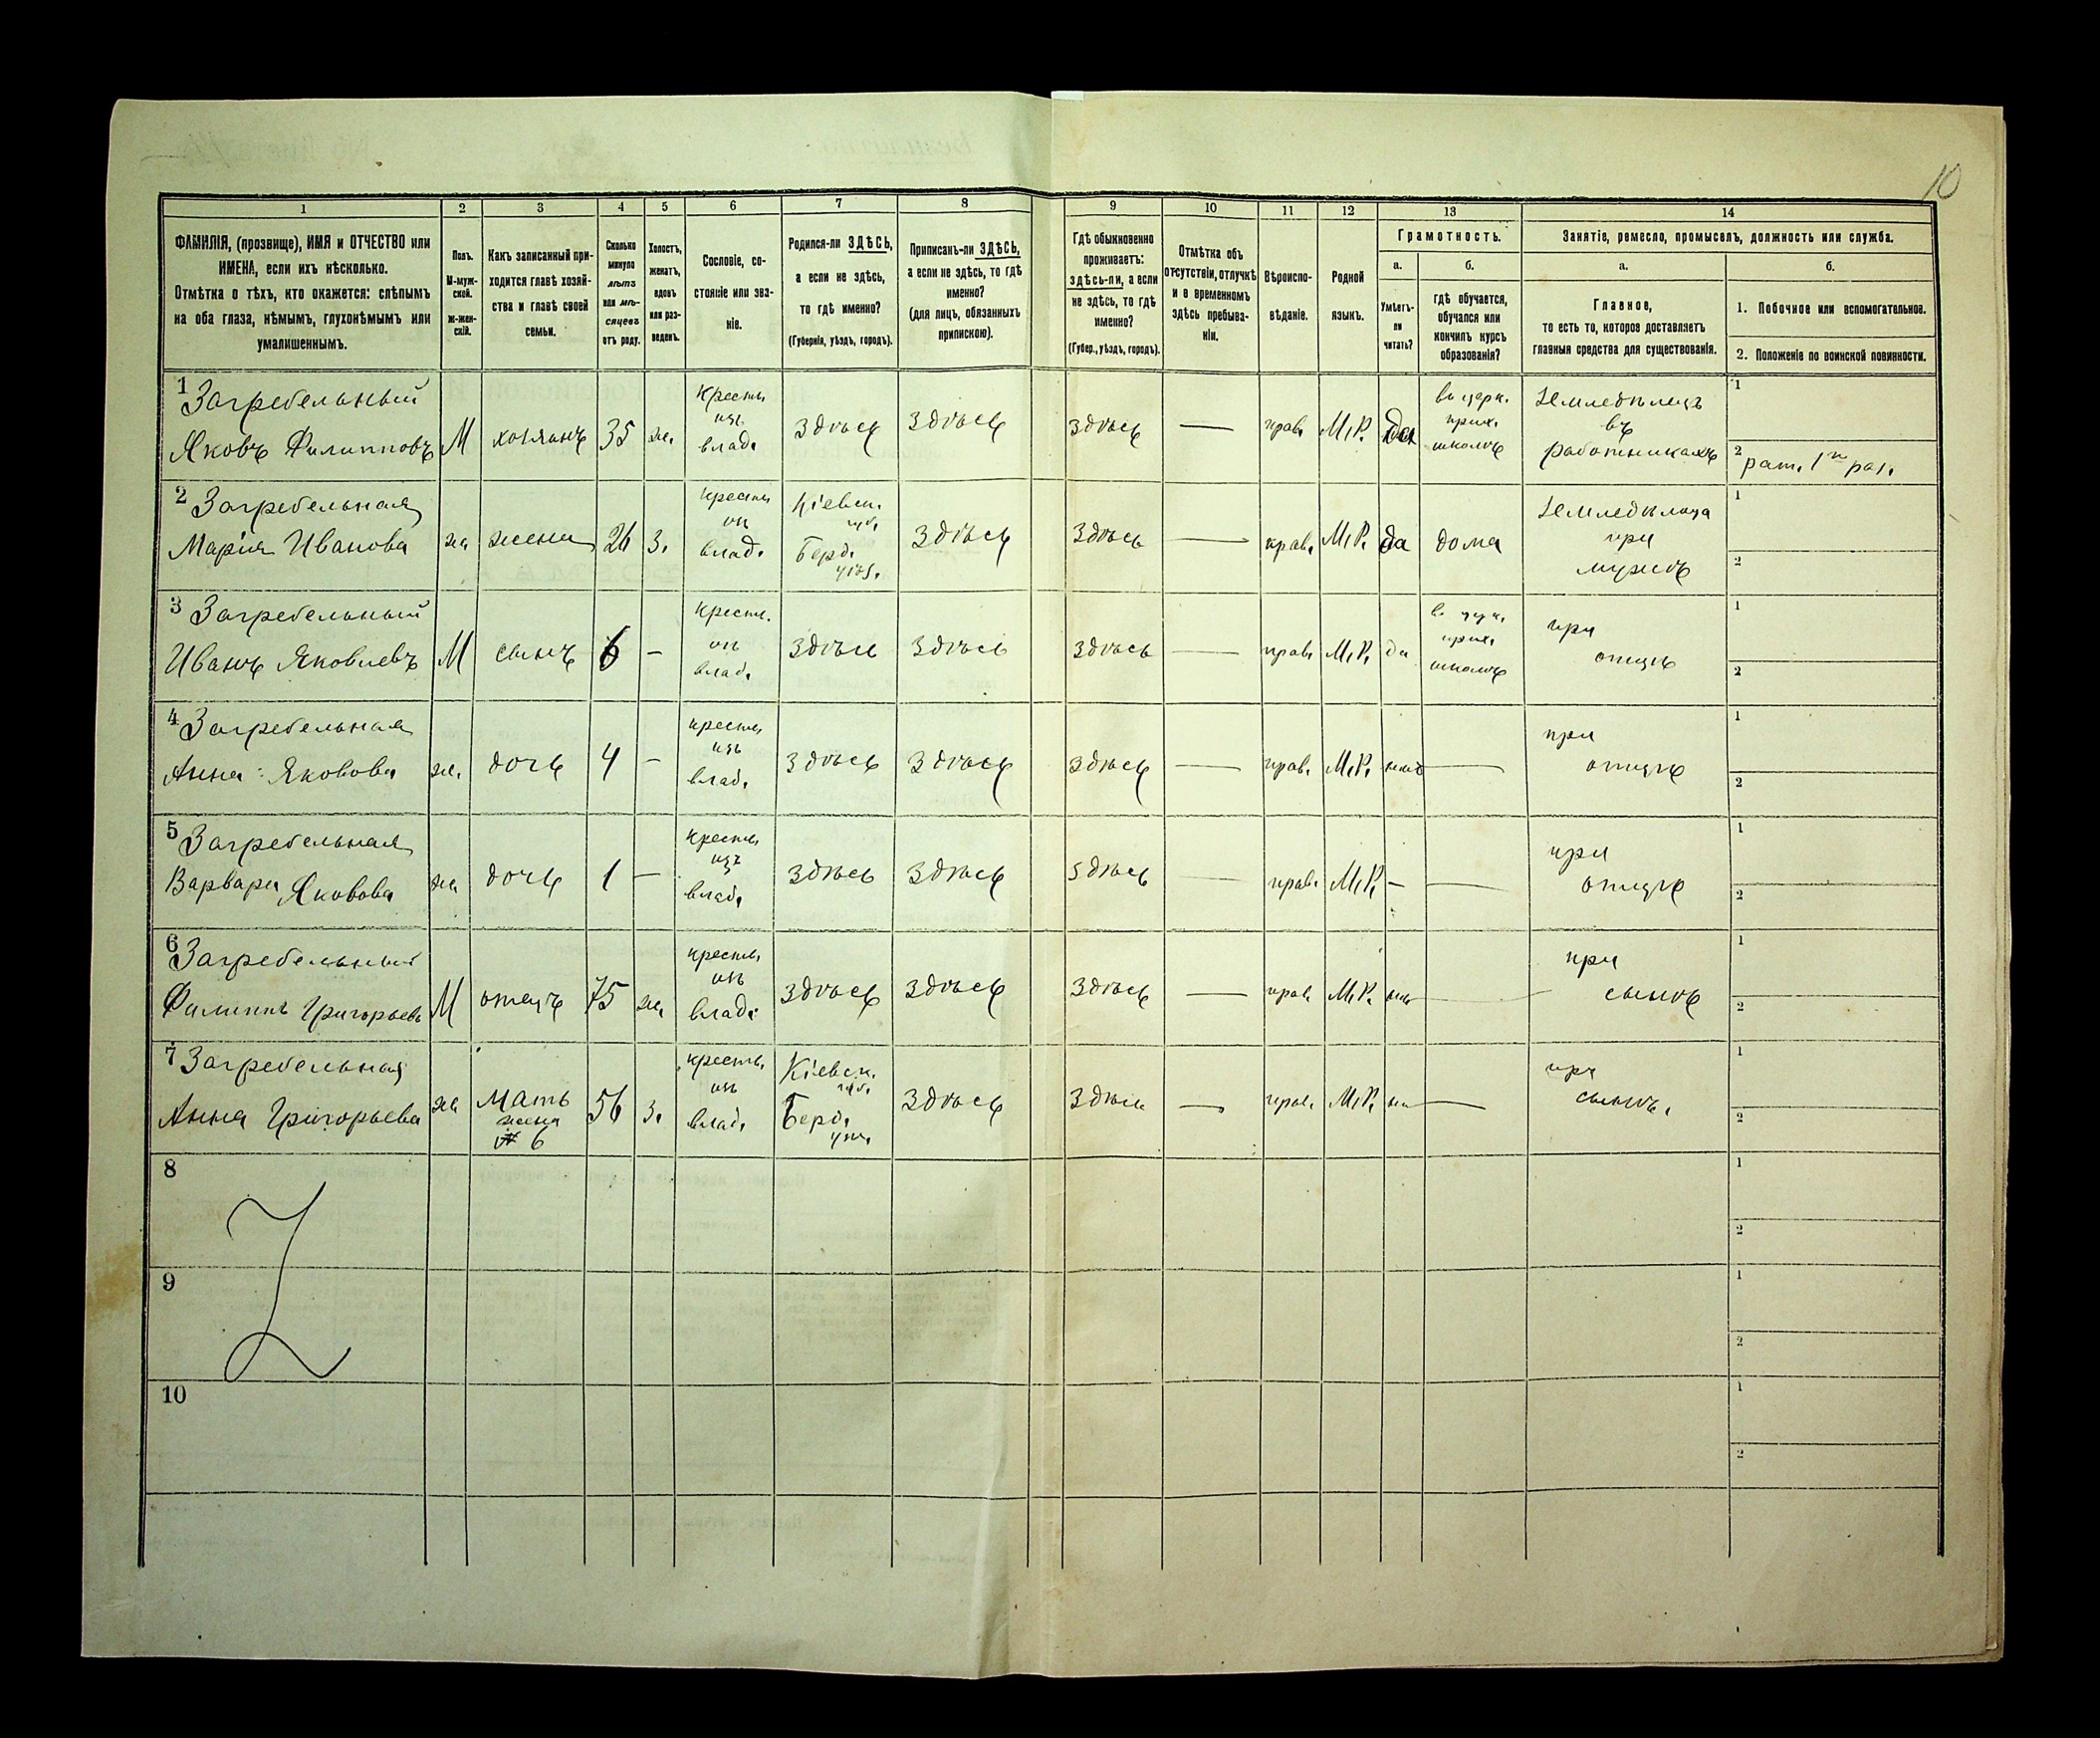 10
1 2 3 4 5 6 7 8 9 10 11 12 13 14
ФАМИЛІЯ, (прозвище), ИМЯ и ОТЧЕСТВО или
ИМЕНА, если ихъ нѣсколько.
Отмѣтка о тѣхъ, кто окажется: слѣпымъ
на оба глаза, нѣмымъ, глухонѣмымъ или
умалишеннымъ.
Полъ.
М-муж-
ской.
ж-жен-
скій.
Какъ записанный при-
ходится главѣ хозяй-
ства и главѣ своей
семьи.
Сколько
минуло
лѣтъ
или мѣ-
сяцевъ
отъ роду.
Холостъ,
женатъ,
вдовъ
или раз-
веденъ.
Сословіе, со-
стояніе или зва-
ніе.
Родился-ли ЗДѢСЬ,
а если не здѣсь,
то гдѣ именно?
(Губернія, уѣздъ, городъ).
Приписанъ-ли ЗДѢСЬ,
а если не здѣсь, то гдѣ
именно?
(для лицъ, обязанныхъ
припискою).
Гдѣ обыкновенно
проживаетъ:
здѣсь-ли, а если
не здѣсь, то гдѣ
именно?
(Губер., уѣздъ, городъ).
Отмѣтка объ
отсутствіи, отлучкѣ
и в временномъ
здѣсь пребыва-
ніи.
Вѣроиспо-
вѣданіе.
Родной
языкъ.
Грамотность.
а.
Умѣетъ-
ли
читать?
б.
гдѣ обучается,
обучался или
кончилъ курсъ
образованія?
Занятіе, ремесло, промыселъ, должность или служба.
а.
Главное,
то есть то, которое доставляетъ
главныя средства для существованія.
б.
1. Побочное или вспомогательное.
2. Положеніе по воинской повинности.
1 Загребельный
Яковъ Филипповъ М хозяинъ 35 ж.
крестьян
изъ
влад.
здѣсь здѣсь здѣсь — прав. М.Р. да
въ церк.
прих.
школѣ
Земледѣлецъ
въ
работникахъ
1
2 рат. 1 раз.
2 Загребельная
Марія Иванова ж жена 26 з.
крестьян
из
влад.
Кіевск.
губ.
Берд.
уѣз.
здѣсь здѣсь — прав. М.Р. да дома
Земледѣлица
при
мужѣ
1
2
3 Загребельный
Иванъ Яковлевъ М сынъ 6 -
крестьян.
из
влад.
здѣсь здѣсь здѣсь — прав. М.Р. да
в церк.
прих.
школѣ
при
отцѣ
1
2
4 Загребельная
Анна Яковова ж. дочь 4 -
крестьян
изъ
влад.
здѣсь здѣсь здѣсь — прав. М.Р. —
при
отцѣ
1
2
5 Загребельная
Варвара Яковова ж дочь 1 —
крестьян
изъ
влад.
здѣсь здѣсь здѣсь — прав. М.Р. - —
при
отцѣ
1
2
6 Загребельный
Филиппъ Григорьевъ М отецъ 75 ж.
крестьян
изъ
влад.
здѣсь здѣсь здѣсь — прав. М.Р. —
при
сынѣ
1
2
7 Загребельная
Анна Григорьева ж
Мать
жена
№ 6
56 з.
крестьян.
изъ
влад.
Кіевск.
губ.
Берд.
уѣз.
здѣсь здѣсь — прав. М.Р. —
при
сынѣ.
1
2
8
1
2
9
1
2
10
1
2